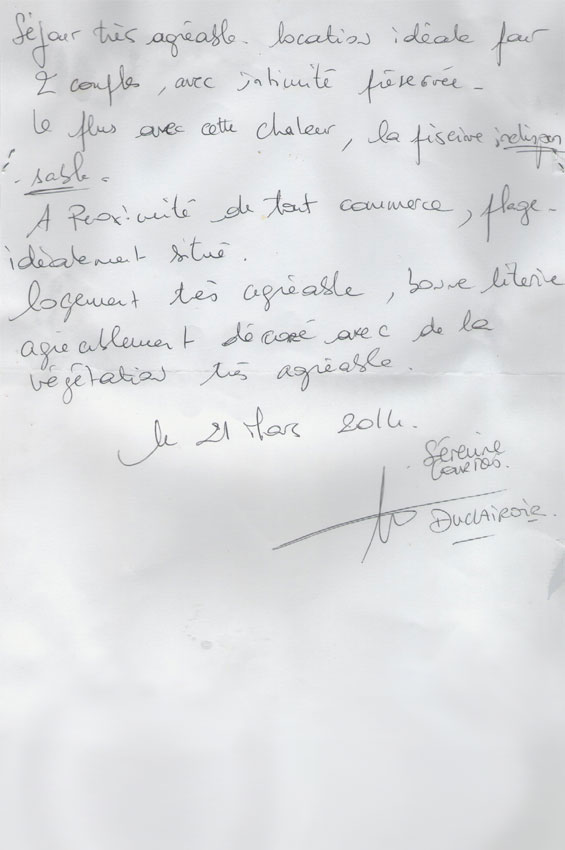 Séjour très agréable. location idéale pour
2 couples, avec intimité préservée -
le plus avec cette chaleur, la piscine indispen
- sable.
A Proximité de tout commerce, plage -
idéalement situé.
logement très agréable, bonne literie
agréablement décoré avec de la
végétation très agréable.
le 21 Mars 2014.
DUCLAIROIR.